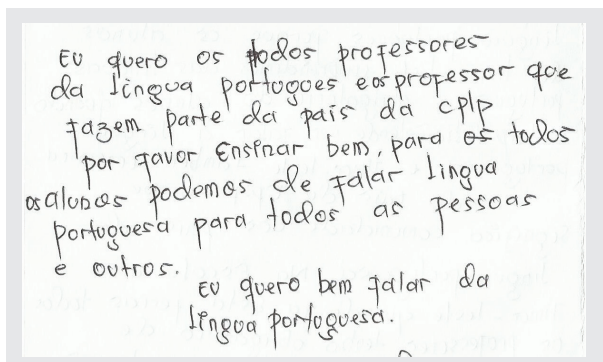 Eu quero os todos professores
da língua portugoes e os professor que
fazem parte da país da cplp
por favor Ensinar bem, para os todos
os alunos podemos de falar lingua
portuguesa para todos as pessoas
e outros.
Eu quero bem falar da
língua portuguesa.